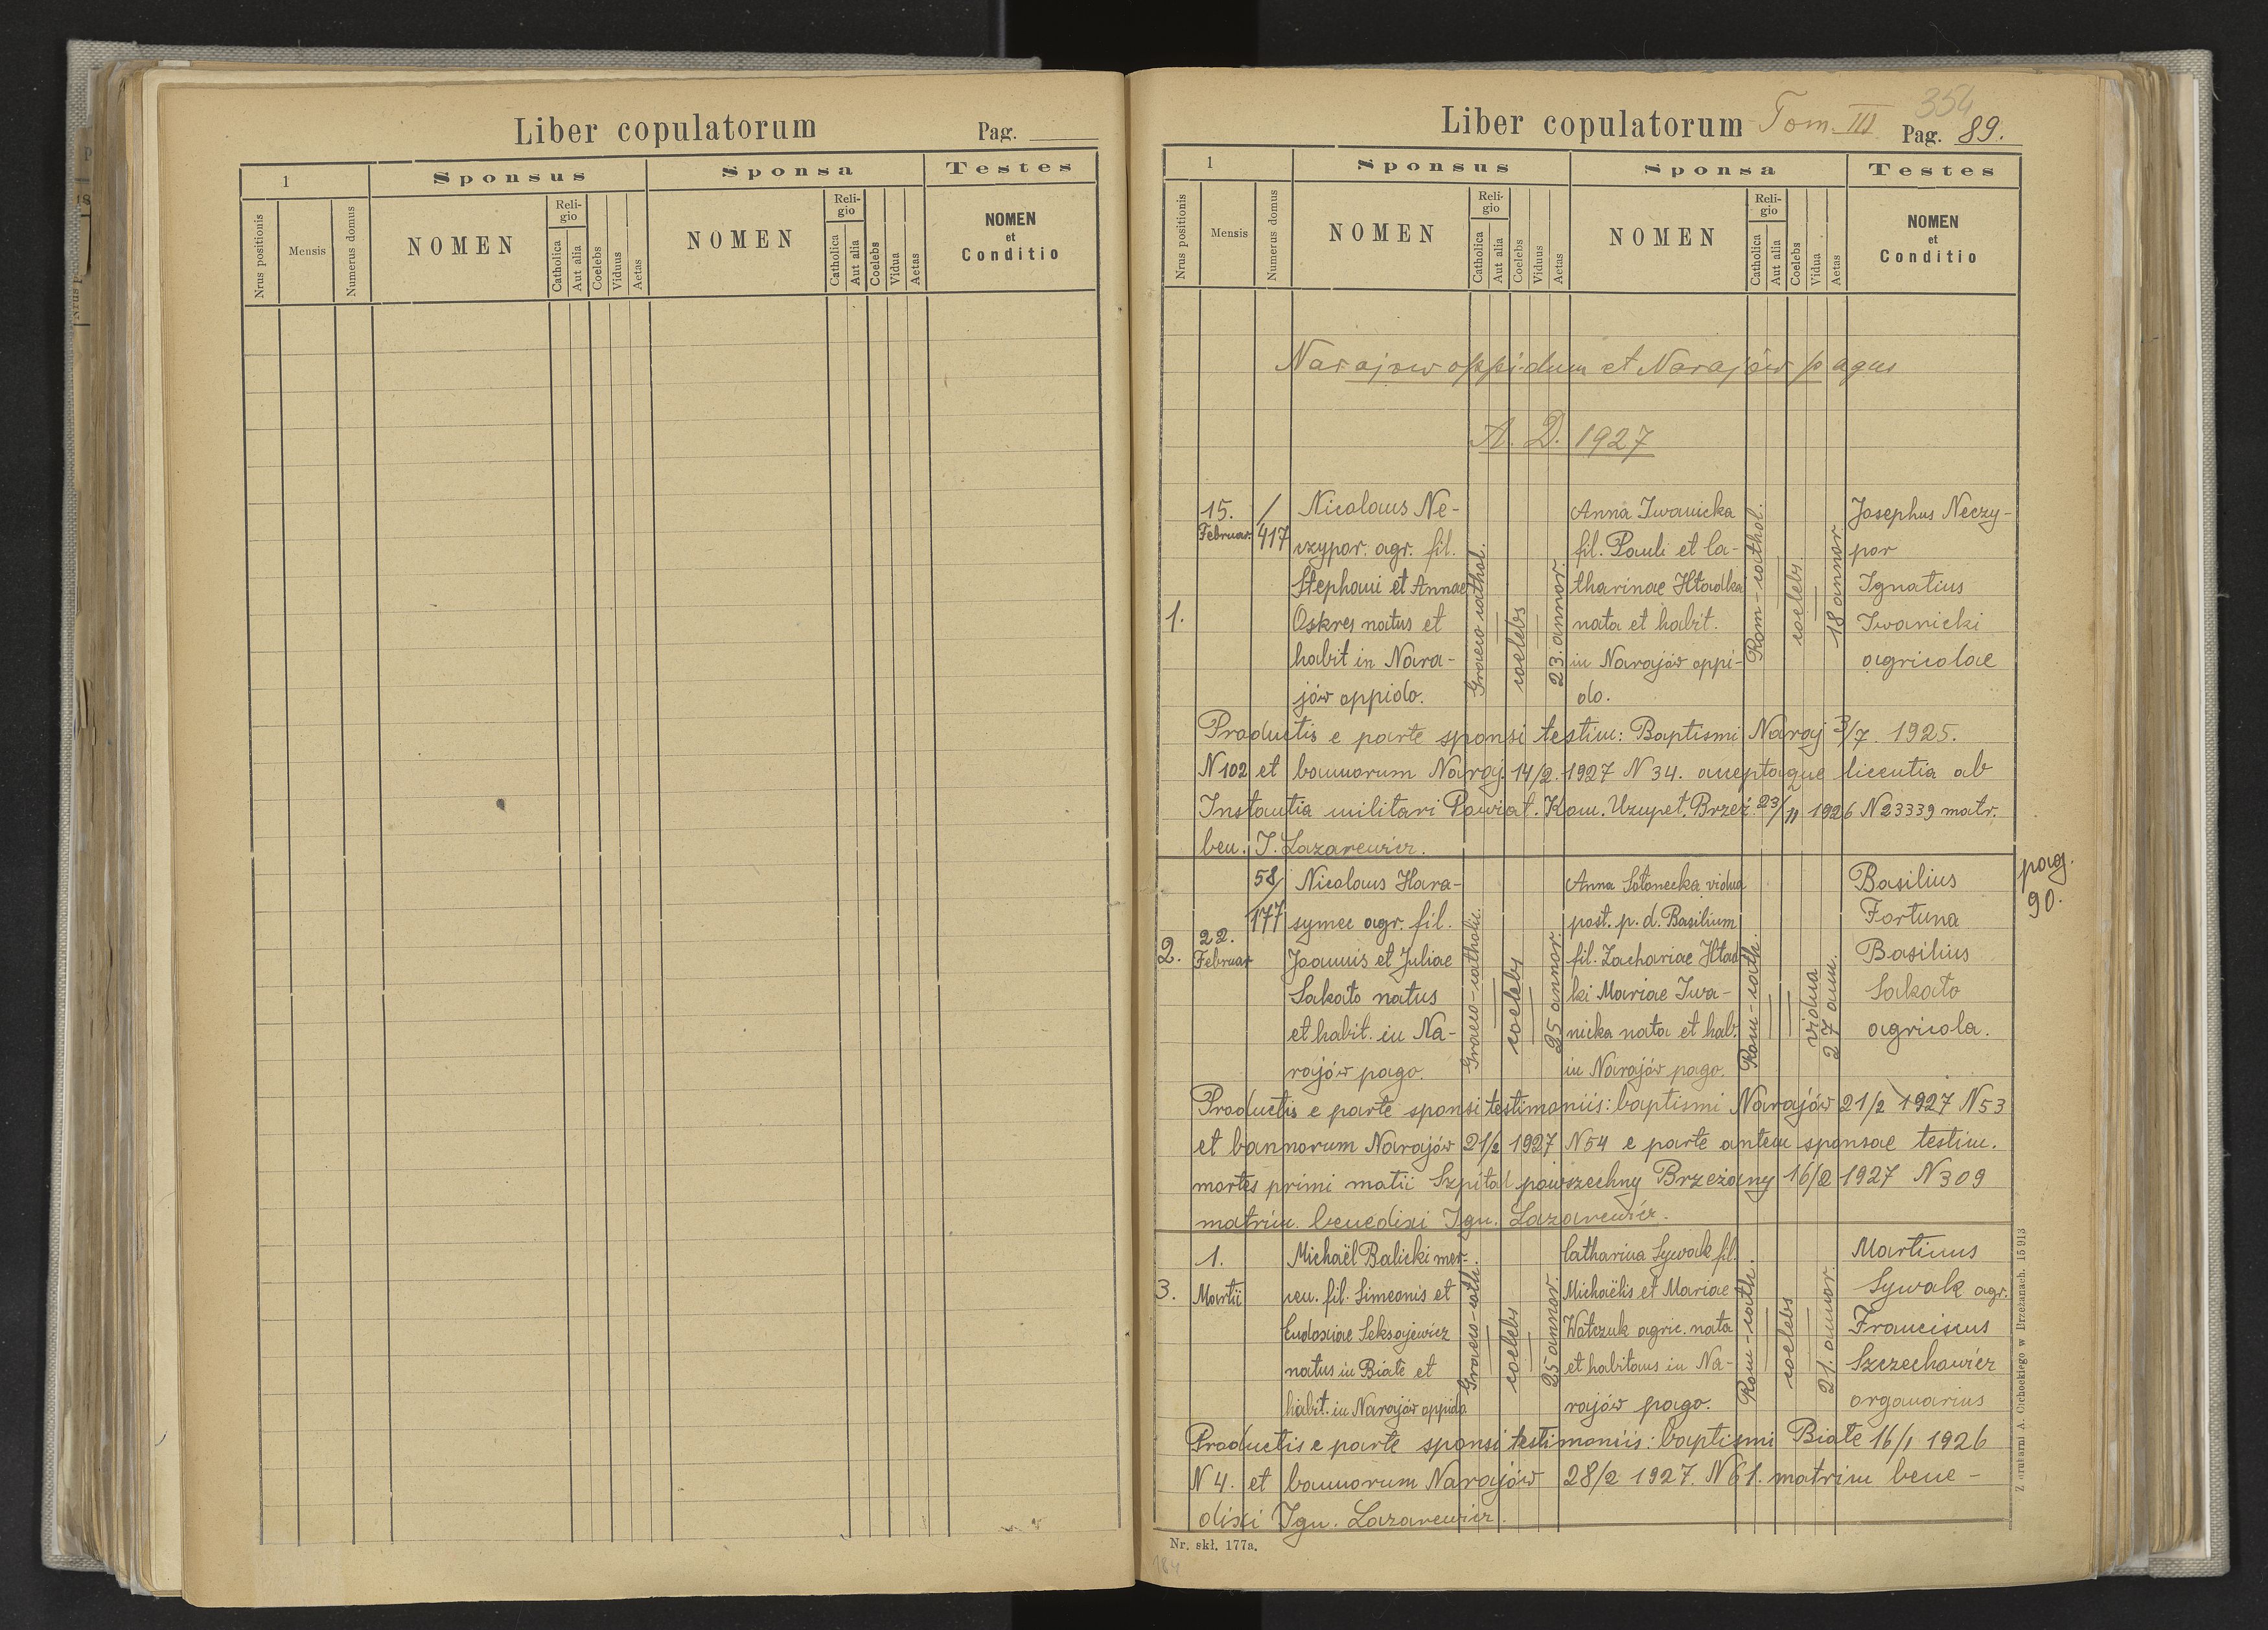 Liber copulatorum
Pag.
1
Sponsus
Sponsa
Testes
Nrus positionis
Mensis
Numerus domus
NOMEN
Reli-
gio
Catholica
Aut alia
Coelebs
Viduus
Aetas
NOMEN
Reli-
gio
Catholica
Aut alia
Coelebs
Vidua
Aetas
NOMEN
et
Conditio
Liber copulatorum Tom. III
354
Pag. 89.
1
Sponsus
Sponsa
Testes
Nrus positionis
Mensis
Numerus domus
NOMEN
Reli-
gio
Catholica
Aut alia
Coelebs
Viduus
Aetas
NOMEN
Reli-
gio
Catholica
Aut alia
Coelebs
Vidua
Aetas
NOMEN
et
Conditio
Narajow oppidum et Narajów pagus
A. D. 1927
1.
15.
Februar.
/
417
Nicolaus Ne-
czypor. agr. fil.
Stephani et Annae
Oskres natus et
habit in Nara-
jów oppido.
Graeco cathol.
coelebs
23. annor.
Anna Iwanicka
fil. Pauli et Ca-
tharinae Hładka
nata et habit.
in Narajów oppi-
do.
Rom-cathol.
coelebs
18 annor.
Josephus Neczy-
por
Ignatius
Iwanicki
agricolae
Productis e parte sponsi testim: Baptismi Naraj 3/7. 1925.
N102 et bannorum Naraj. 14/2. 1927 N 34. acceptaque licentia ab
Instantia militari Powiat. Kom. Uzupeł. Brzeż. 23/11 1926 N23339 matr.
ben. I. Lazarewicz.
2.
22.
Februar
58/
177
Nicolaus Hara-
symec agr. fil.
Joannis et Juliae
Sakato natus
et habit. in Na-
rajów pago.
Graeco-catholic.
coelebs
25 annor.
Anna Sołonecka vidua
post. p. d. Basilium
fil. Zachariae Hład-
ki Mariae Iwa-
nicka nata et hab.
in Narajów pago.
Rom-cath.
vidua
27 ann.
Basilius
Fortuna
Basilius
Sakato
agricola.
pag.
90.
Productis e parte sponsi testimoniis: baptismi Narajów 21/2 1927 N53
et bannorum Narajów 21/2 1927 N54 e parte autem sponsae testim.
mortis primi matii Szpital powszechny Brzeżany 16/2 1927 N309
matrim. benedixi Ign. Lazarewicz.
3.
1.
Martii
Michaël Balicki mer-
cen. fil. Simeonis et
Eudoxiae Seksajewicz
natus in Białe et
habit. in Narajów oppido
Graeco-cath.
coelebs
25 annor.
Catharina Sywak fil.
Michaëlis et Mariae
Watczuk agric. nata
et habitans in Na-
rajów pago.
Rom-cath.
coelebs
21. annor.
Martinus
Sywak agr.
Franciscus
Szczechowicz
organarius
Productis e parte sponsi testimoniis: baptismi Białe 16/1 1926
N 4. et bannorum Narajów 28/2 1927. N61. matrim bene-
dixi Ign. Lazarewicz.
Nr. skł. 177a.
184
Z drukarni A. Cichockiego w Brzeżanach. 15913